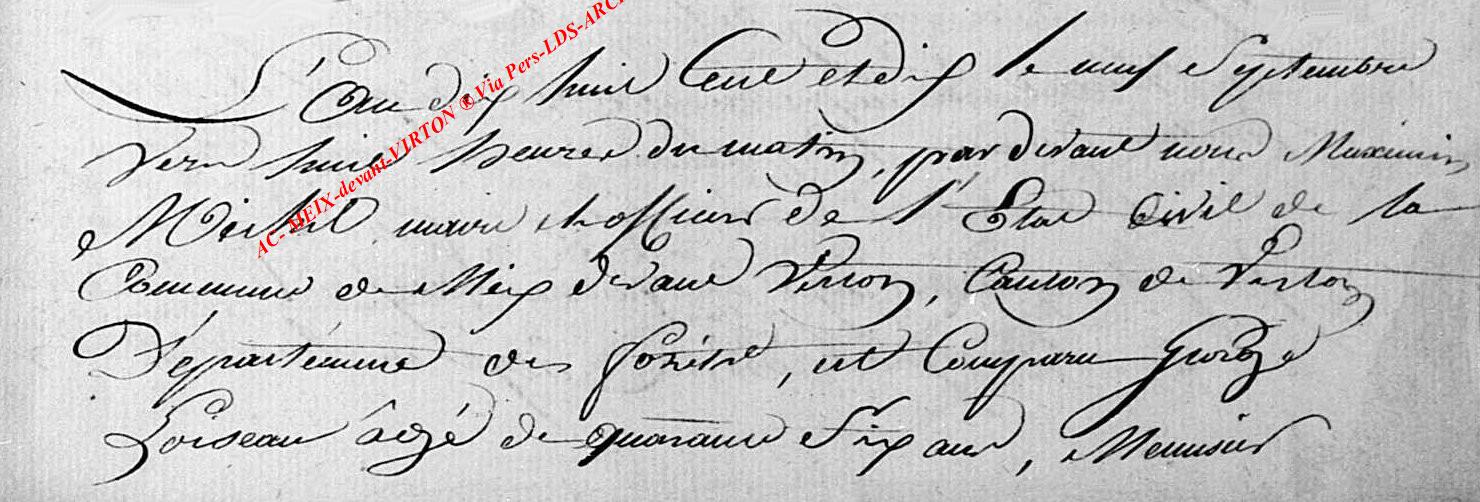 AC-MEIX-devant-VIRTON ® Via Pers-LDS-ARC
L'an dix huit Cent et dix le neuf Septembre
vers huit heures du matin, par devant nous Maximin
Michel maire et officier de l'Etat Civil de la
Commune de Meix devant Virton, Canton de Virton
Département des forêts, est Comparu George
Loiseau âgé de quarante Six ans, Menuisier